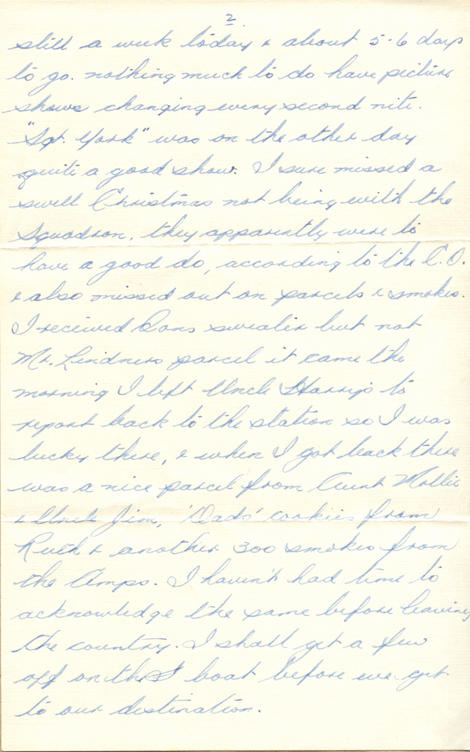 2.
still a week today & about 5-6 days
to go. nothing much to do have picture
shows changing every second nite.
"Sgt. York" was on the other day
quite a good show. I sure missed a
swell Christmas not being with the
Squadron. they apparently were to
have a good do, according to the C.O.
& also missed out on parcels & smokes.
I received Dons sweater but not
Mr. Lindners parcel it came the
morning I left Uncle Harrys to
report back to the station so I was
lucky there, & when I got back there
was a nice parcel from Aunt Mollie
& Uncle Jim, 'Dads' cookies from
Ruth & another 300 smokes from
the Amps. I havent had time to
acknowledge the same before leaving
the country. I shall get a few
off on the boat before we get
to our destination.